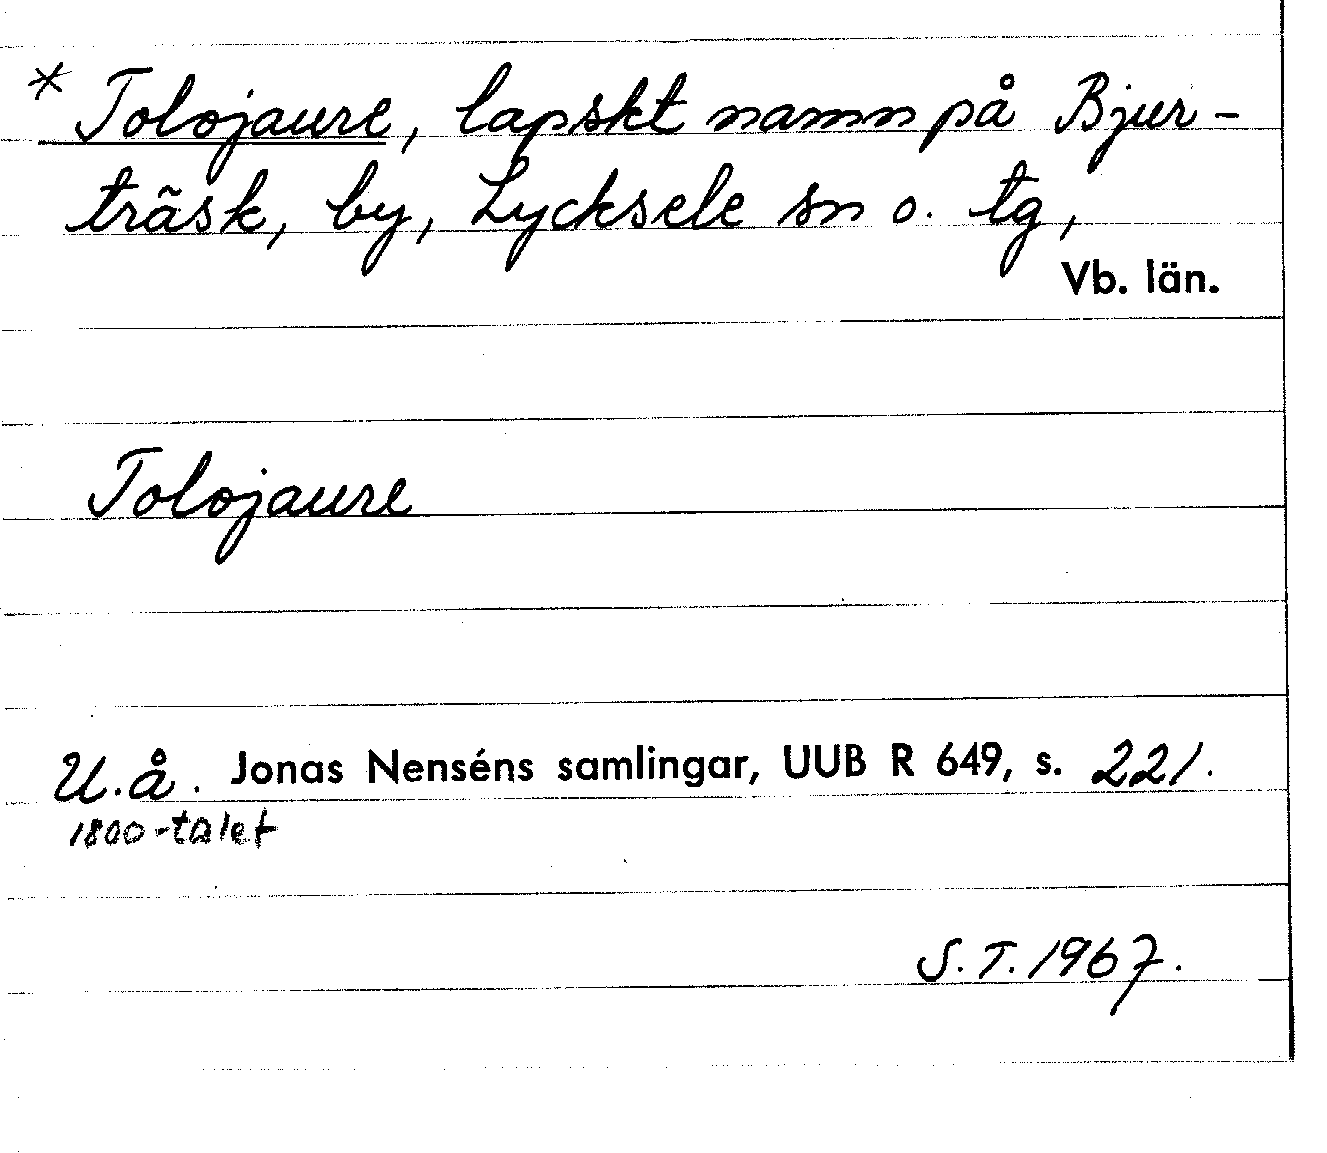 * Tolojaure, lapskt namn på Bjur-
träsk, by, Lycksele sn o. tg,
Vb. län.
Tolojaure
U.å. Jonas Nenséns samlingar, UUB R 649, s. 221.
1800-talet
S.T. 1967.